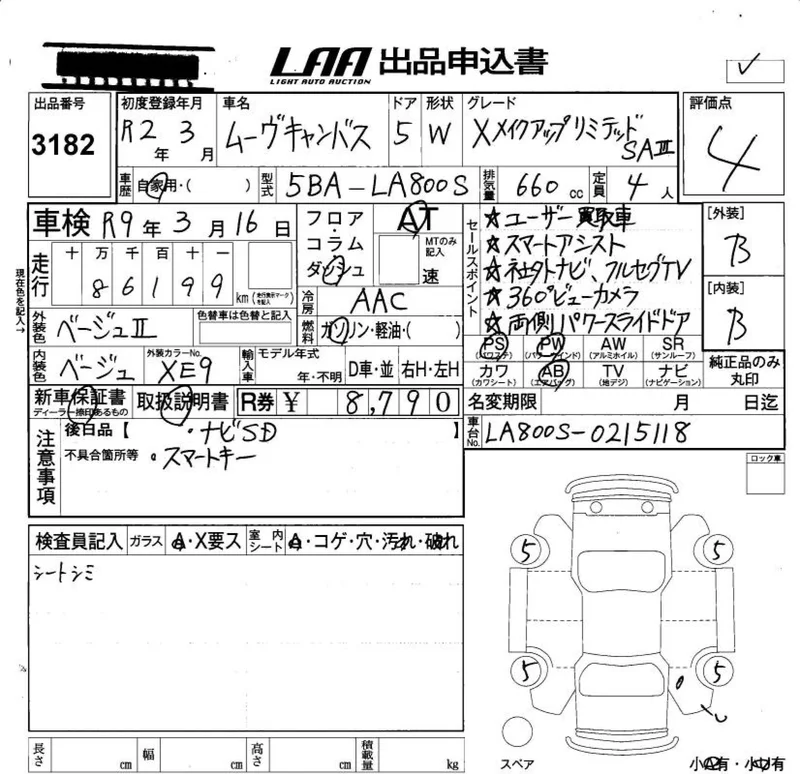 LAA 出品申込書
LIGHT AUTO AUCTION
出品番号 3182
初度登録年月 R2年 3月
車名 ムーヴキャンバス
ドア 5
形状 W
グレード XメイクアップリミテッドSAⅢ
評価点 4
車歴 自家用・( )
型式 5BA-LA800S
排気量 660cc
定員 4人
車検 R9年3月16日
フロア・コラム・ダッシュ
AT
MTのみ記入 速
走行 十 万 千 百 十 一
86199 km (走行無示マークを記入)
現在色を記入→
冷房 AAC
燃料 ガソリン・軽油・( )
外装色 ベージュⅡ
色替車は色替と記入
内装色 ベージュ
外装カラーNo. XE9
輸入車 モデル年式 年・不明 D車・並 右H・左H
新車保証書
ディーラー捺印あるもの
取扱説明書
R券 ¥ 8,790
セールスポイント
★ユーザー買取車
★スマートアシスト
★社外ナビ、フルセグTV
★360°ビューカメラ
★両側パワースライドドア
[外装] B
[内装] B
PS (パワステ) PW (パワーウインド) AW (アルミホイル) SR (サンルーフ)
カワ (カワシート) AB (エアバッグ) TV (地デジ) ナビ (ナビゲーション)
純正品のみ丸印
名変期限 月 日迄
車台No. LA800S-0215118
注意事項
後日品【 ・ナビSD 】
不具合箇所等 ・スマートキー
ロック車
検査員記入 ガラス A・X要ス 室内シート A・コゲ・穴・汚れ・破れ
シートシミ
5 5
5 5
スペア
長さ cm 幅 cm 高さ cm 積載量 kg